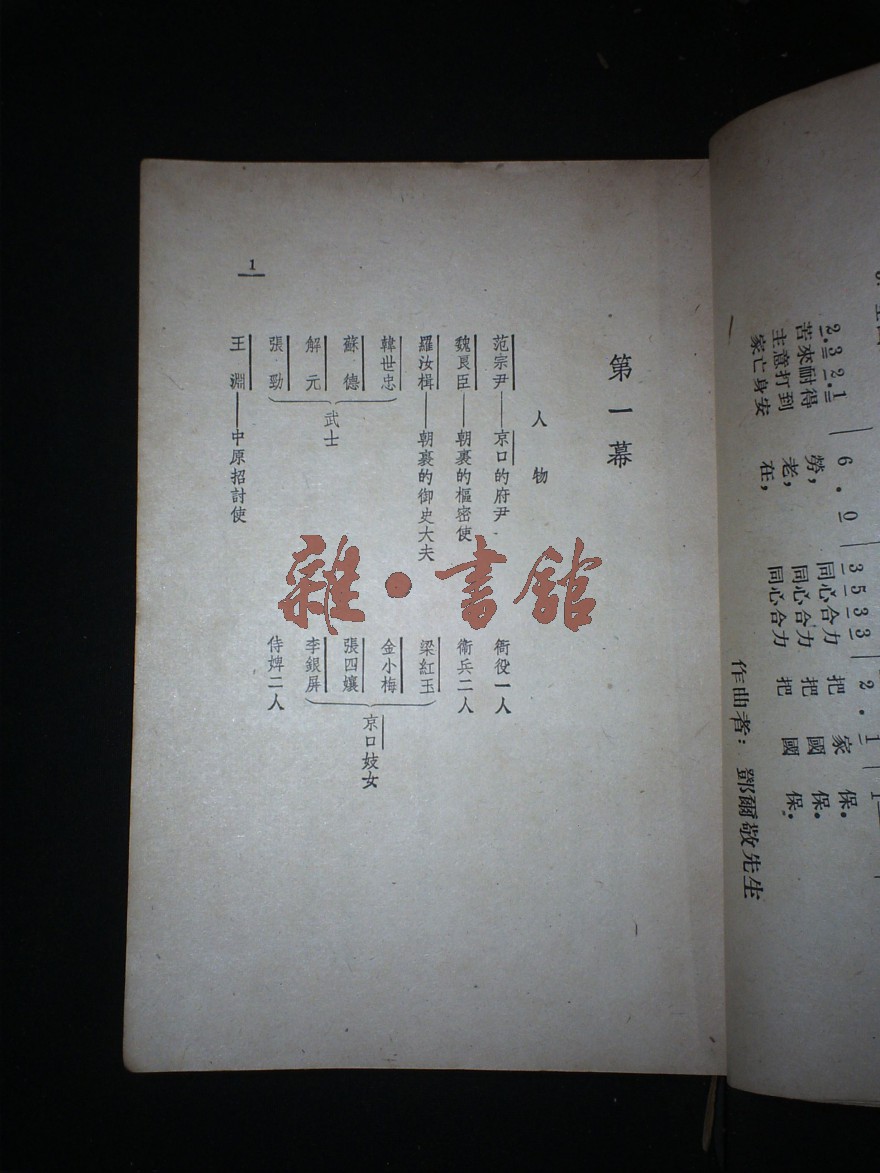 第一幕
人物
范宗尹——京口的府尹
魏良臣——朝裏的樞密使
羅汝楫——朝裏的御史大夫
韓世忠
蘇德
解元
張勁
武士
王淵——中原招討使
衙役一人
衛兵二人
梁紅玉
金小梅
張四孃
李銀屏
京口妓女
侍婢二人
1
雜·書館
2.3 2.1 | 6 . 0 | 3 5 3 3 | 2 . 1 | 1
苦來耐得勞，同心合力把家保。
主意打到老，同心合力把國保。
家亡身安在，同心合力把國保。
作曲者：鄧爾敬先生